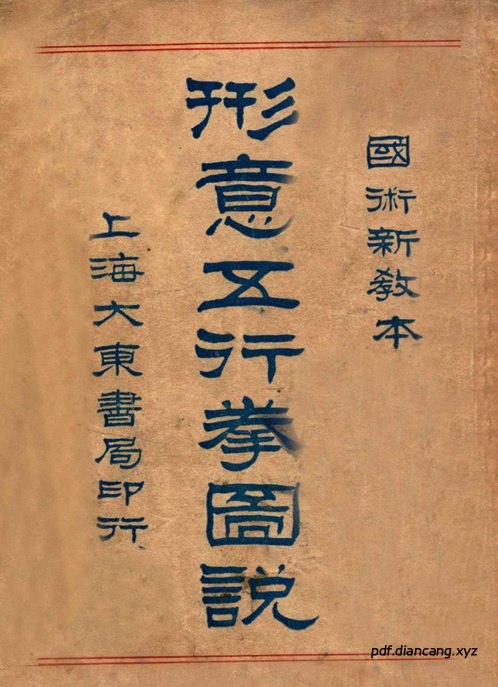 國術新教本
形意五行拳圖說
上海大東書局印行
pdf.diancang.xyz